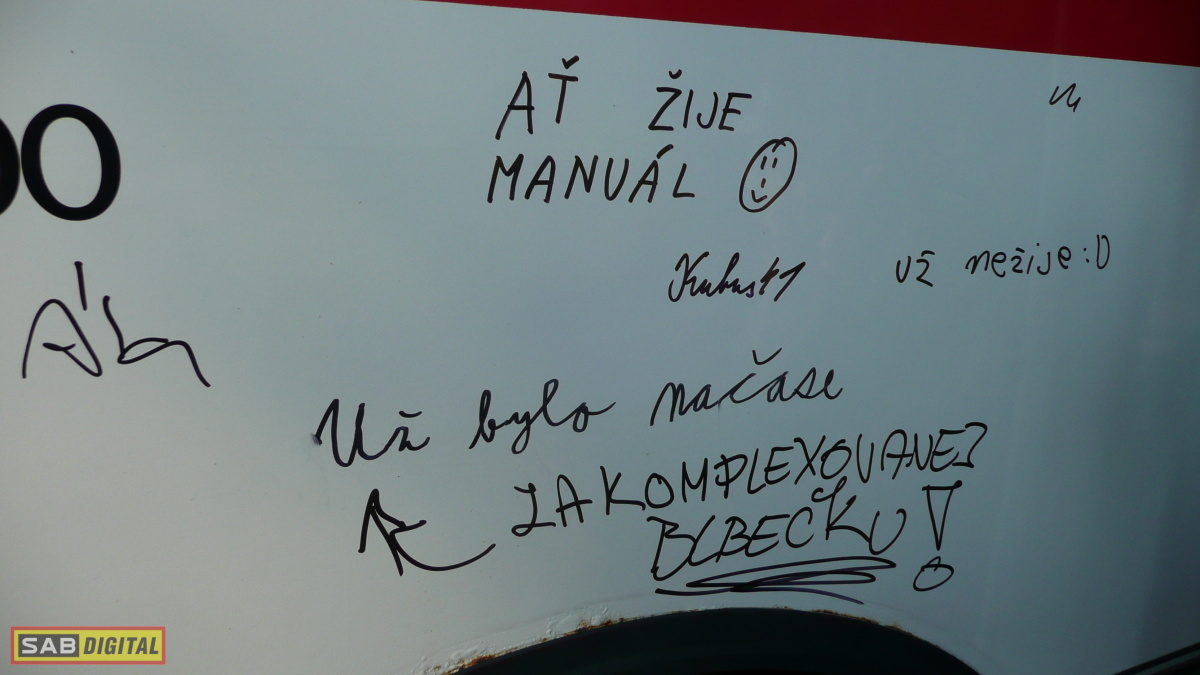 AŤ ŽIJE
MANUÁL
už nežije :D
Už bylo načase
ZAKOMPLEXOVANEJ
BLBEČKU!
SAB DIGITAL